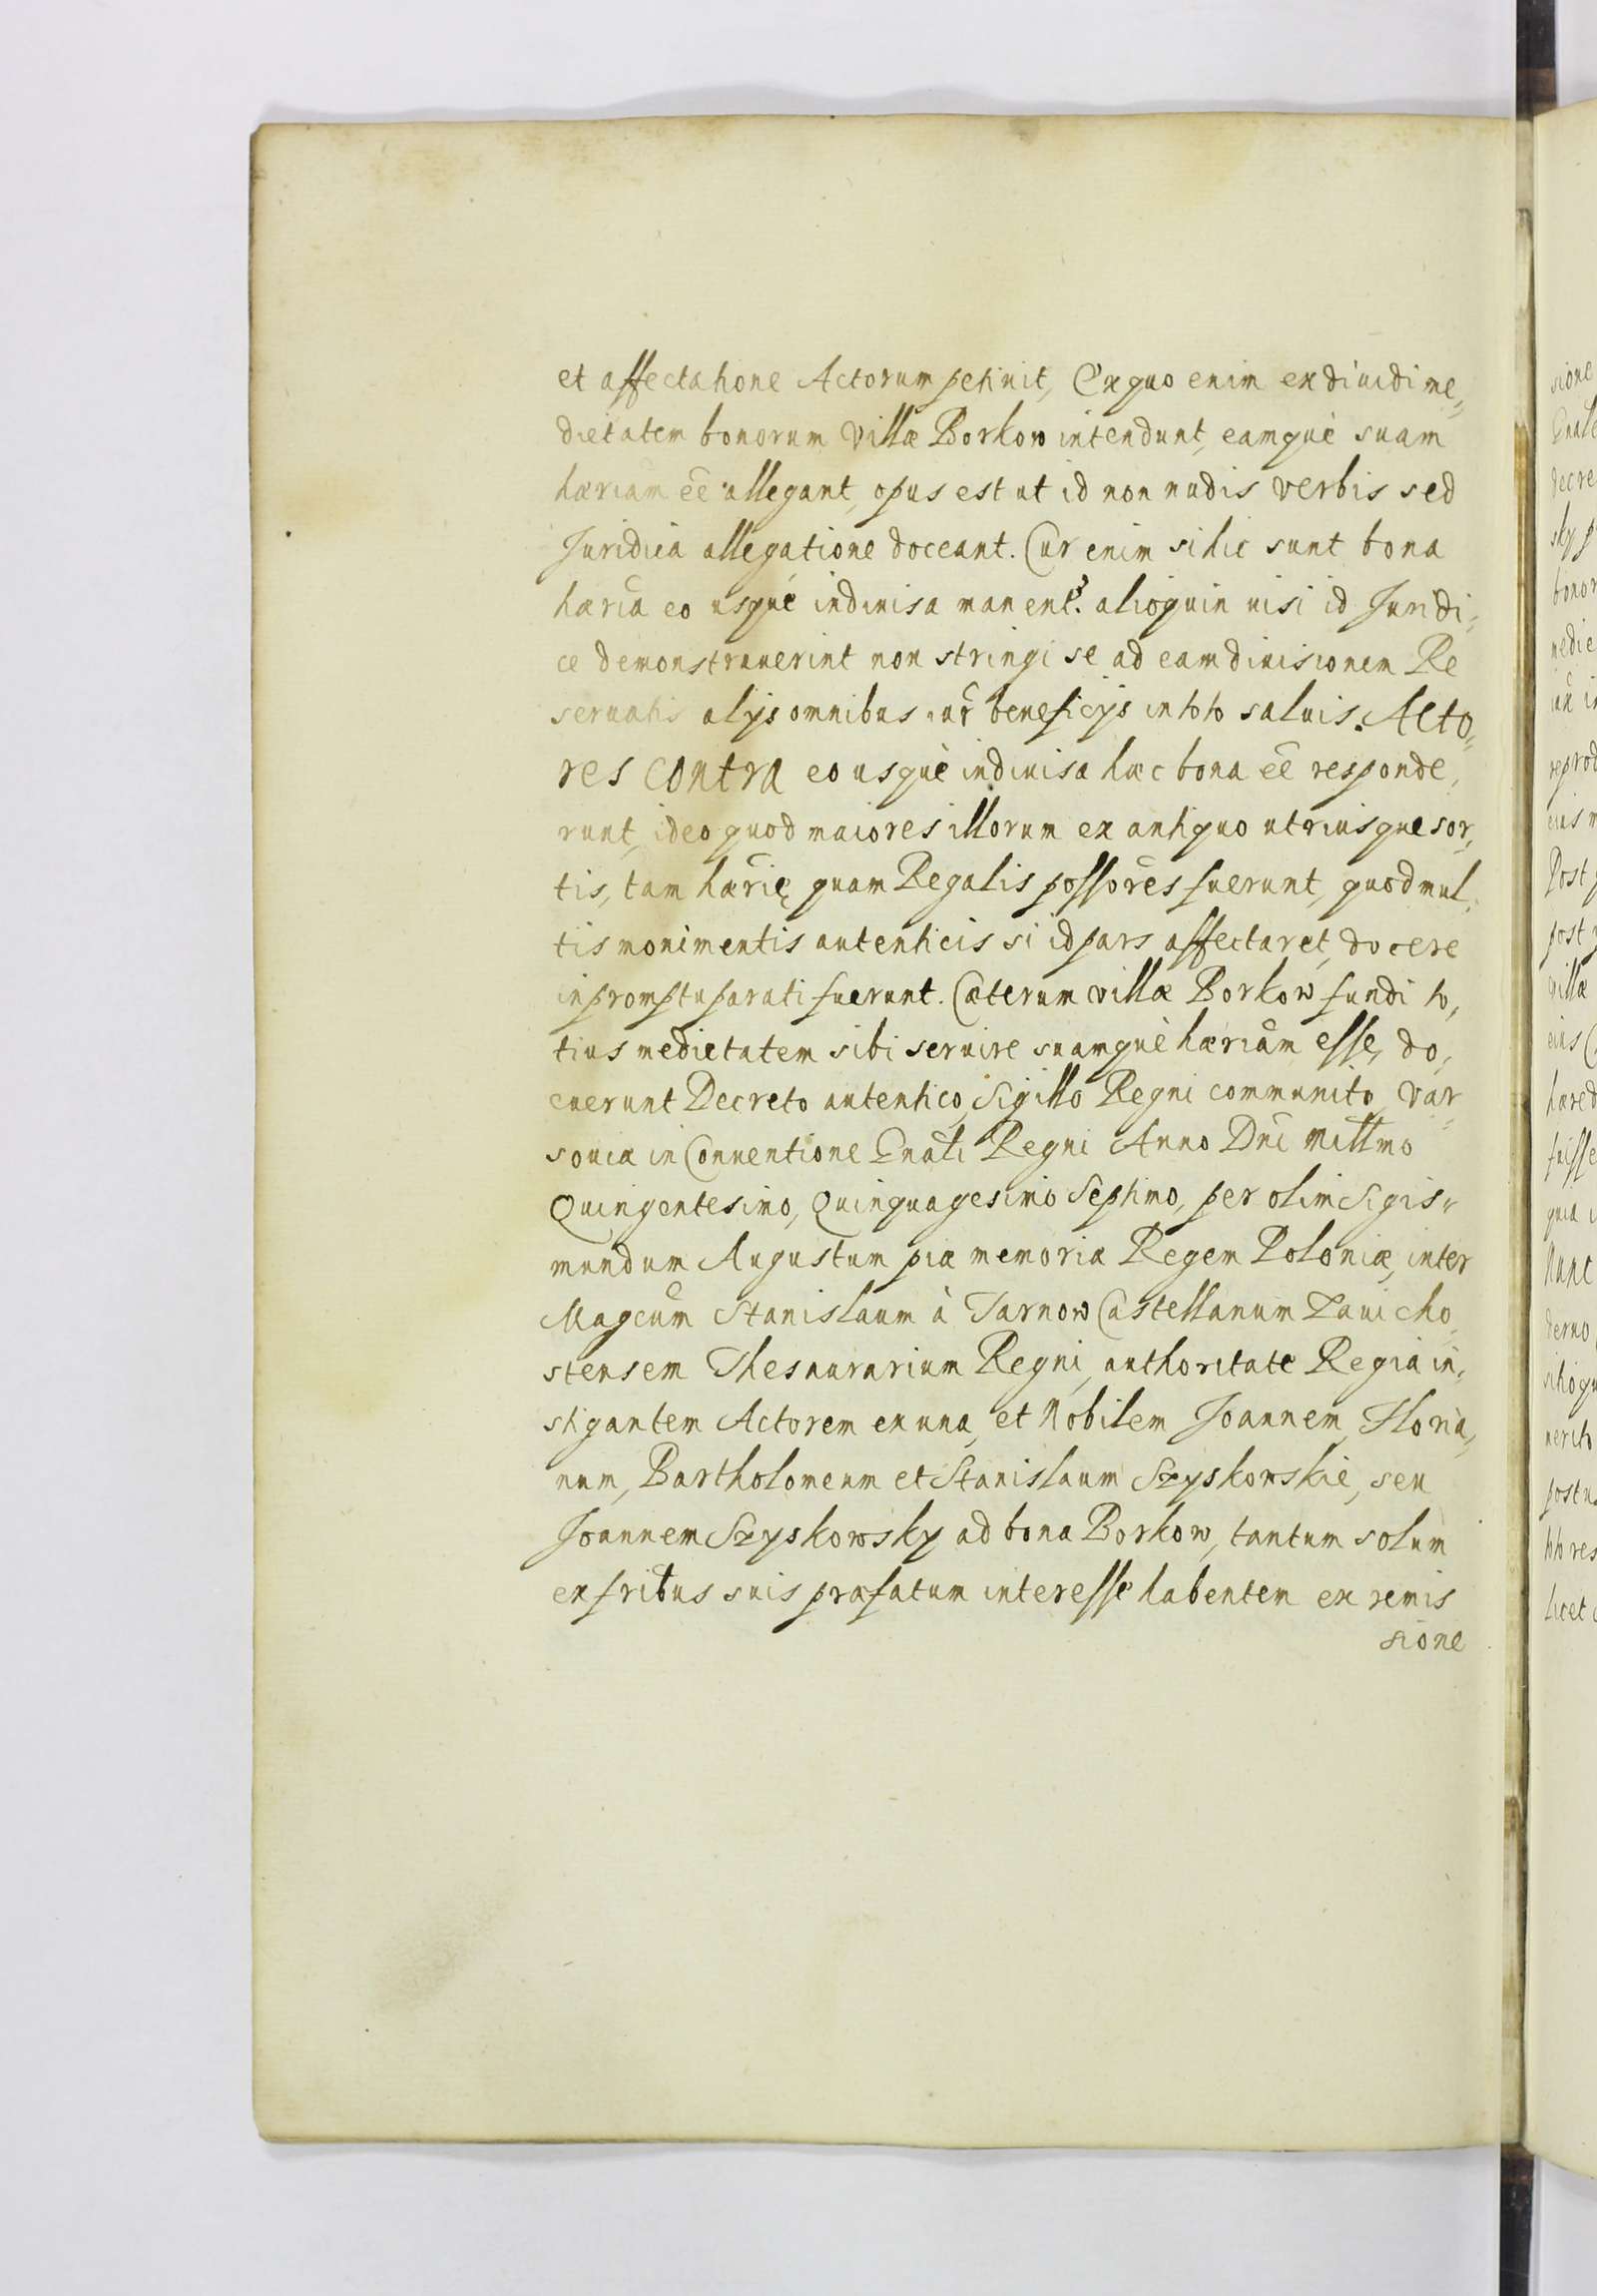 et affectatione Actorum petiuit, Ex quo enim ex diuidi me„
dietatem bonorum Villæ Borkow intendunt, eamquè suam
hæriam eẽ allegant, opus est ut id non nudis verbis sed
Juridica allegatione doceant. Cur enim si hic sunt bona
hæria eo usquè indiuisa manent? alioquin nisi id Juridi„
ce demonstrauerint non stringi se ad eam diuisionem Re
seruatis alijs omnibus iur̃ beneficijs in toto saluis. Acto„
res contra eo usquè indiuisa hæc bona eẽ responde,
runt, ideo quod maiores illorum ex antiquo utriusque sor„
tis, tam hærię quam Regalis possores fuerunt, quod mul,
tis monimentis autenticis si id pars affectaret, docere
in promptu parati fuerunt. Cæterum villæ Borkow fundi to,
tius medietatem sibi seruire suamquè hæriam esse, do,
cuerunt Decreto autentico, Sigillo Regni communito, Var„
souiæ in Conuentione Gnali Regni Anno Dni Millmo
Quingentesimo, Quinquagesimo Septimo, per olim Sigis„
mundum Augustum piæ memoriæ Regem Poloniæ, inter
Magcum Stanislaum à Tarnow Castellanum Zauicho„
stensem Thesaurarium Regni, authoritate Regia in„
stigantem Actorem ex una, et Nobilem Joannem, Floria,
num, Bartholomeum et Stanislaum Szyskowskie, seu
Joannem Szyskowsky ad bona Borkow, tantum solum
ex fribus suis præfatum interesse habentem ex remis
sione